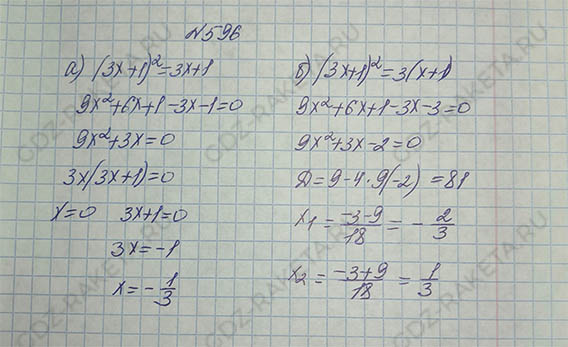 №596
а) (3x+1)²=3x+1
9x²+6x+1-3x-1=0
9x²+3x=0
3x(3x+1)=0
x=0 3x+1=0
3x=-1
x=-1/3
б) (3x+1)²=3(x+1)
9x²+6x+1-3x-3=0
9x²+3x-2=0
D=9-4·9(-2)=81
x₁=(-3-9)/18=-2/3
x₂=(-3+9)/18=1/3
GDZ-RAKETA.RU